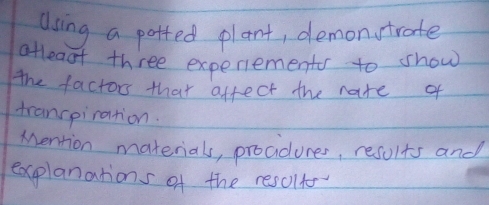 Using a potted plant, demonstrate
atleast three experiements to show
the factors that affect the rate of
transpiration.
Mention materials, procidures, results and
explanations of the results